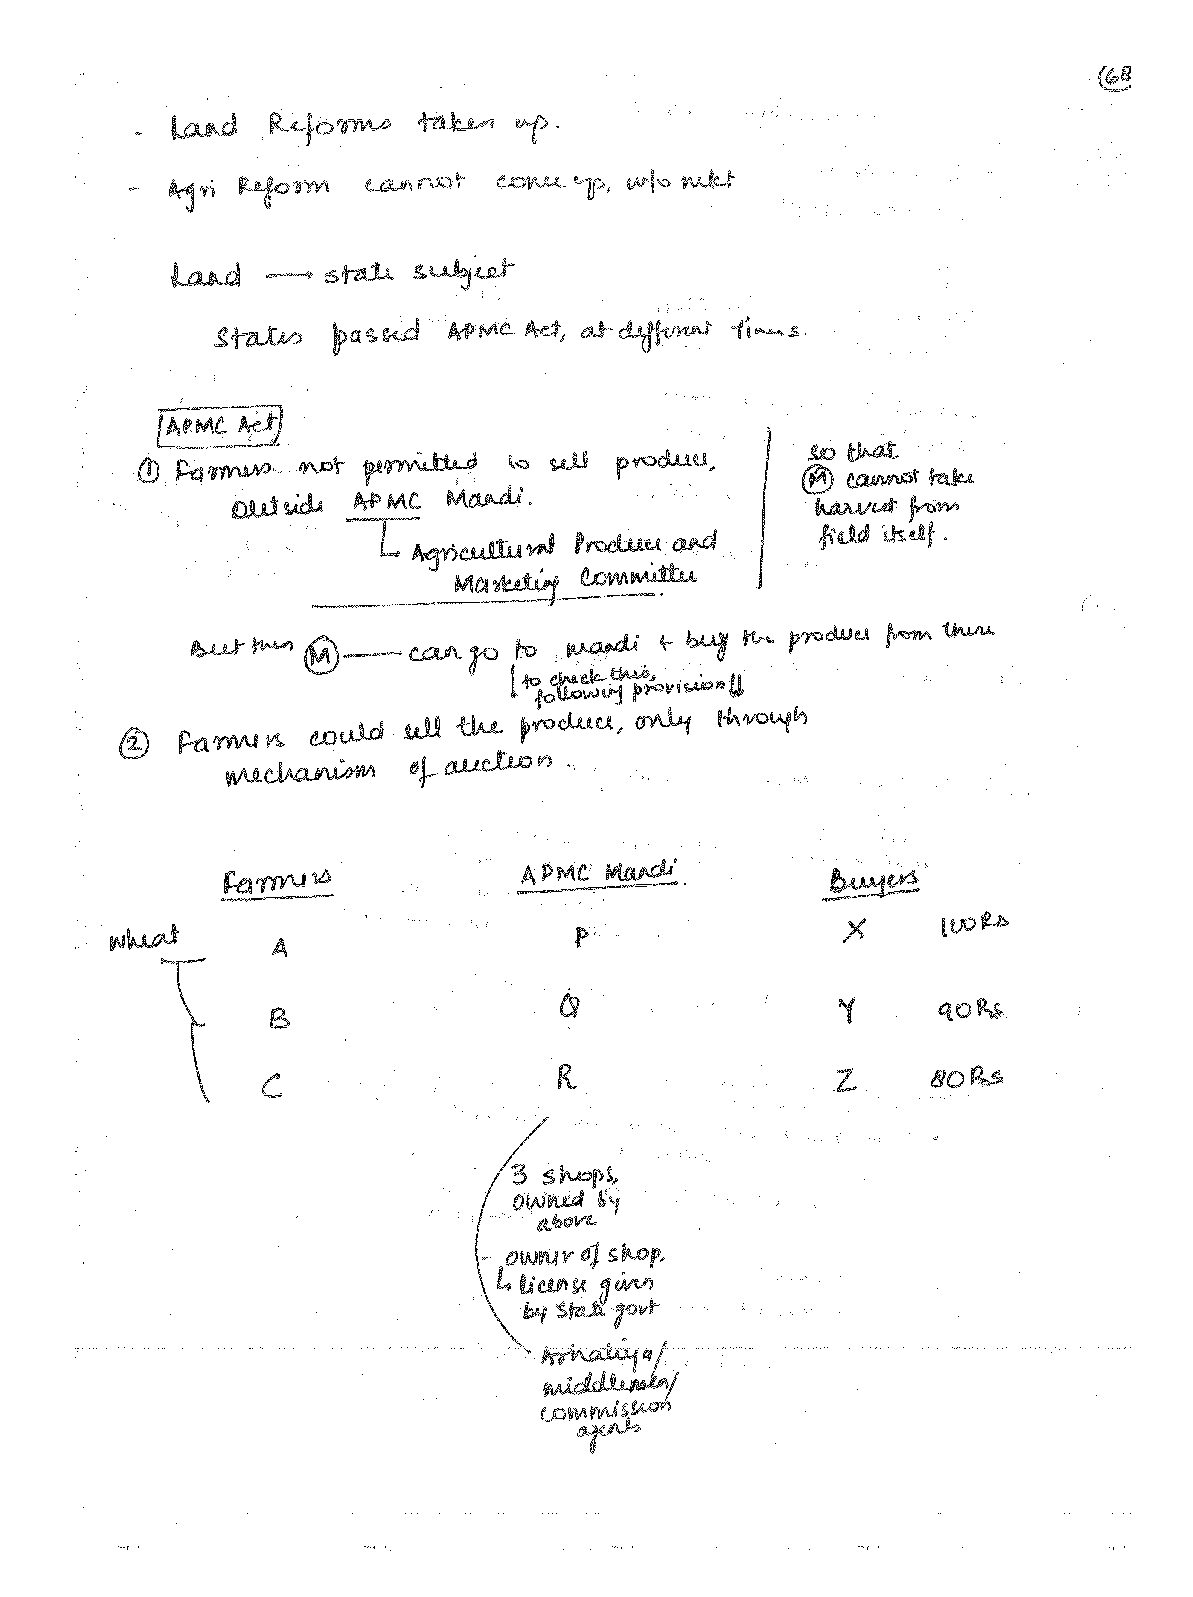 68
- Land Reforms taken up.
- Agri Reform cannot come up, w/o mkt
Land → state subject
States passed APMC Act, at different times.
APMC Act
① Farmers not permitted to sell produce,
outside APMC Mandi.
Agricultural Produce and
Marketing Committee
so that
Ⓜ cannot take
harvest from
field itself.
But then Ⓜ — can go to mandi + buy the produce from there
to check this,
following provision ↓↓
② Farmers could sell the produce, only through
mechanism of auction.
Farmers APMC Mandi Buyers
Wheat A P X 100Rs
B Q Y 90Rs
C R Z 80Rs
3 shops,
owned by
above
- owner of shop.
↳ license given
by State govt
Arhatiya/
middlemen/
commission
agents